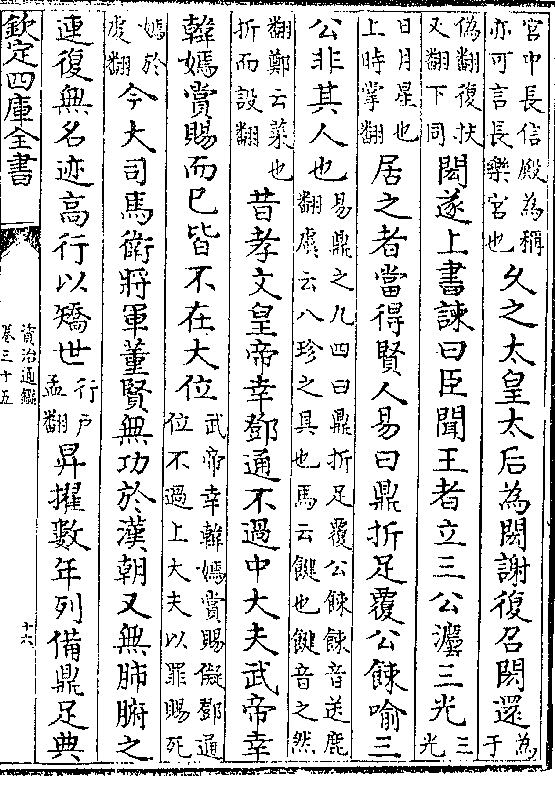 宫中長信殿為稱
亦可言長樂宫也
久之太皇太后為閎謝復召閎還
為
于
偽翻復扶
又翻下同
閎遂上書諫曰臣聞王者立三公灋三光
三
光
日月星也
上時掌翻
居之者當得賢人易曰鼎折足覆公餗喻三
公非其人也
易鼎之九四曰鼎折足覆公餗餗音送鹿
翻虞云八珍之具也馬云饘也饘音之然
翻鄭云菜也
折而設翻
昔孝文皇帝幸鄧通不過中大夫武帝幸
韓嫣賞賜而已皆不在大位
武帝幸韓嫣賞賜儗鄧通
位不過上大夫以罪賜死
嫣於
䖍翻
今大司馬衛將軍董賢無功於漢朝又無肺腑之
連復無名迹高行以矯世
行户
孟翻
昇擢數年列備鼎足典
欽定四庫全書
資治通鑑
卷三十五
十六